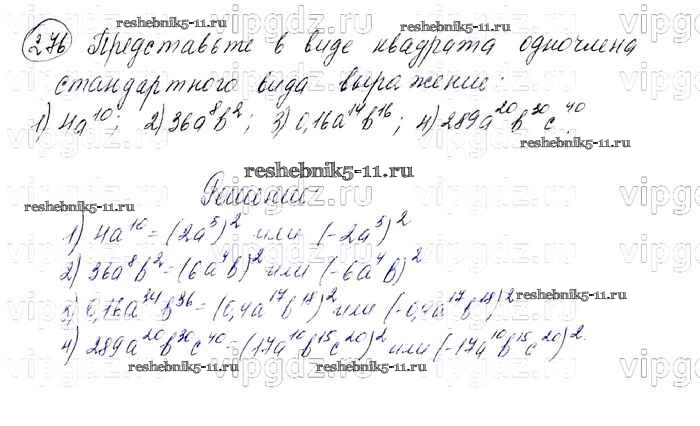 reshebnik5-11.ru
276 Представьте в виде квадрата одночлена
стандартного вида выражение:
1) 4a¹⁰; 2) 36a⁸b²; 3) 0,16a¹⁴b¹⁶; 4) 289a²⁰b³⁰c⁴⁰.
reshebnik5-11.ru
Решение:
reshebnik5-11.ru reshebnik5-11.ru
1) 4a¹⁰ = (2a⁵)² или (-2a⁵)²
2) 36a⁸b² = (6a⁴b)² или (-6a⁴b)²
3) 0,16a³⁴b³⁶ = (0,4a¹⁷b¹⁸)² или (-0,4a¹⁷b¹⁸)²
reshebnik5-11.ru
4) 289a²⁰b³⁰c⁴⁰ = (17a¹⁰b¹⁵c²⁰)² или (-17a¹⁰b¹⁵c²⁰)².
reshebnik5-11.ru reshebnik5-11.ru